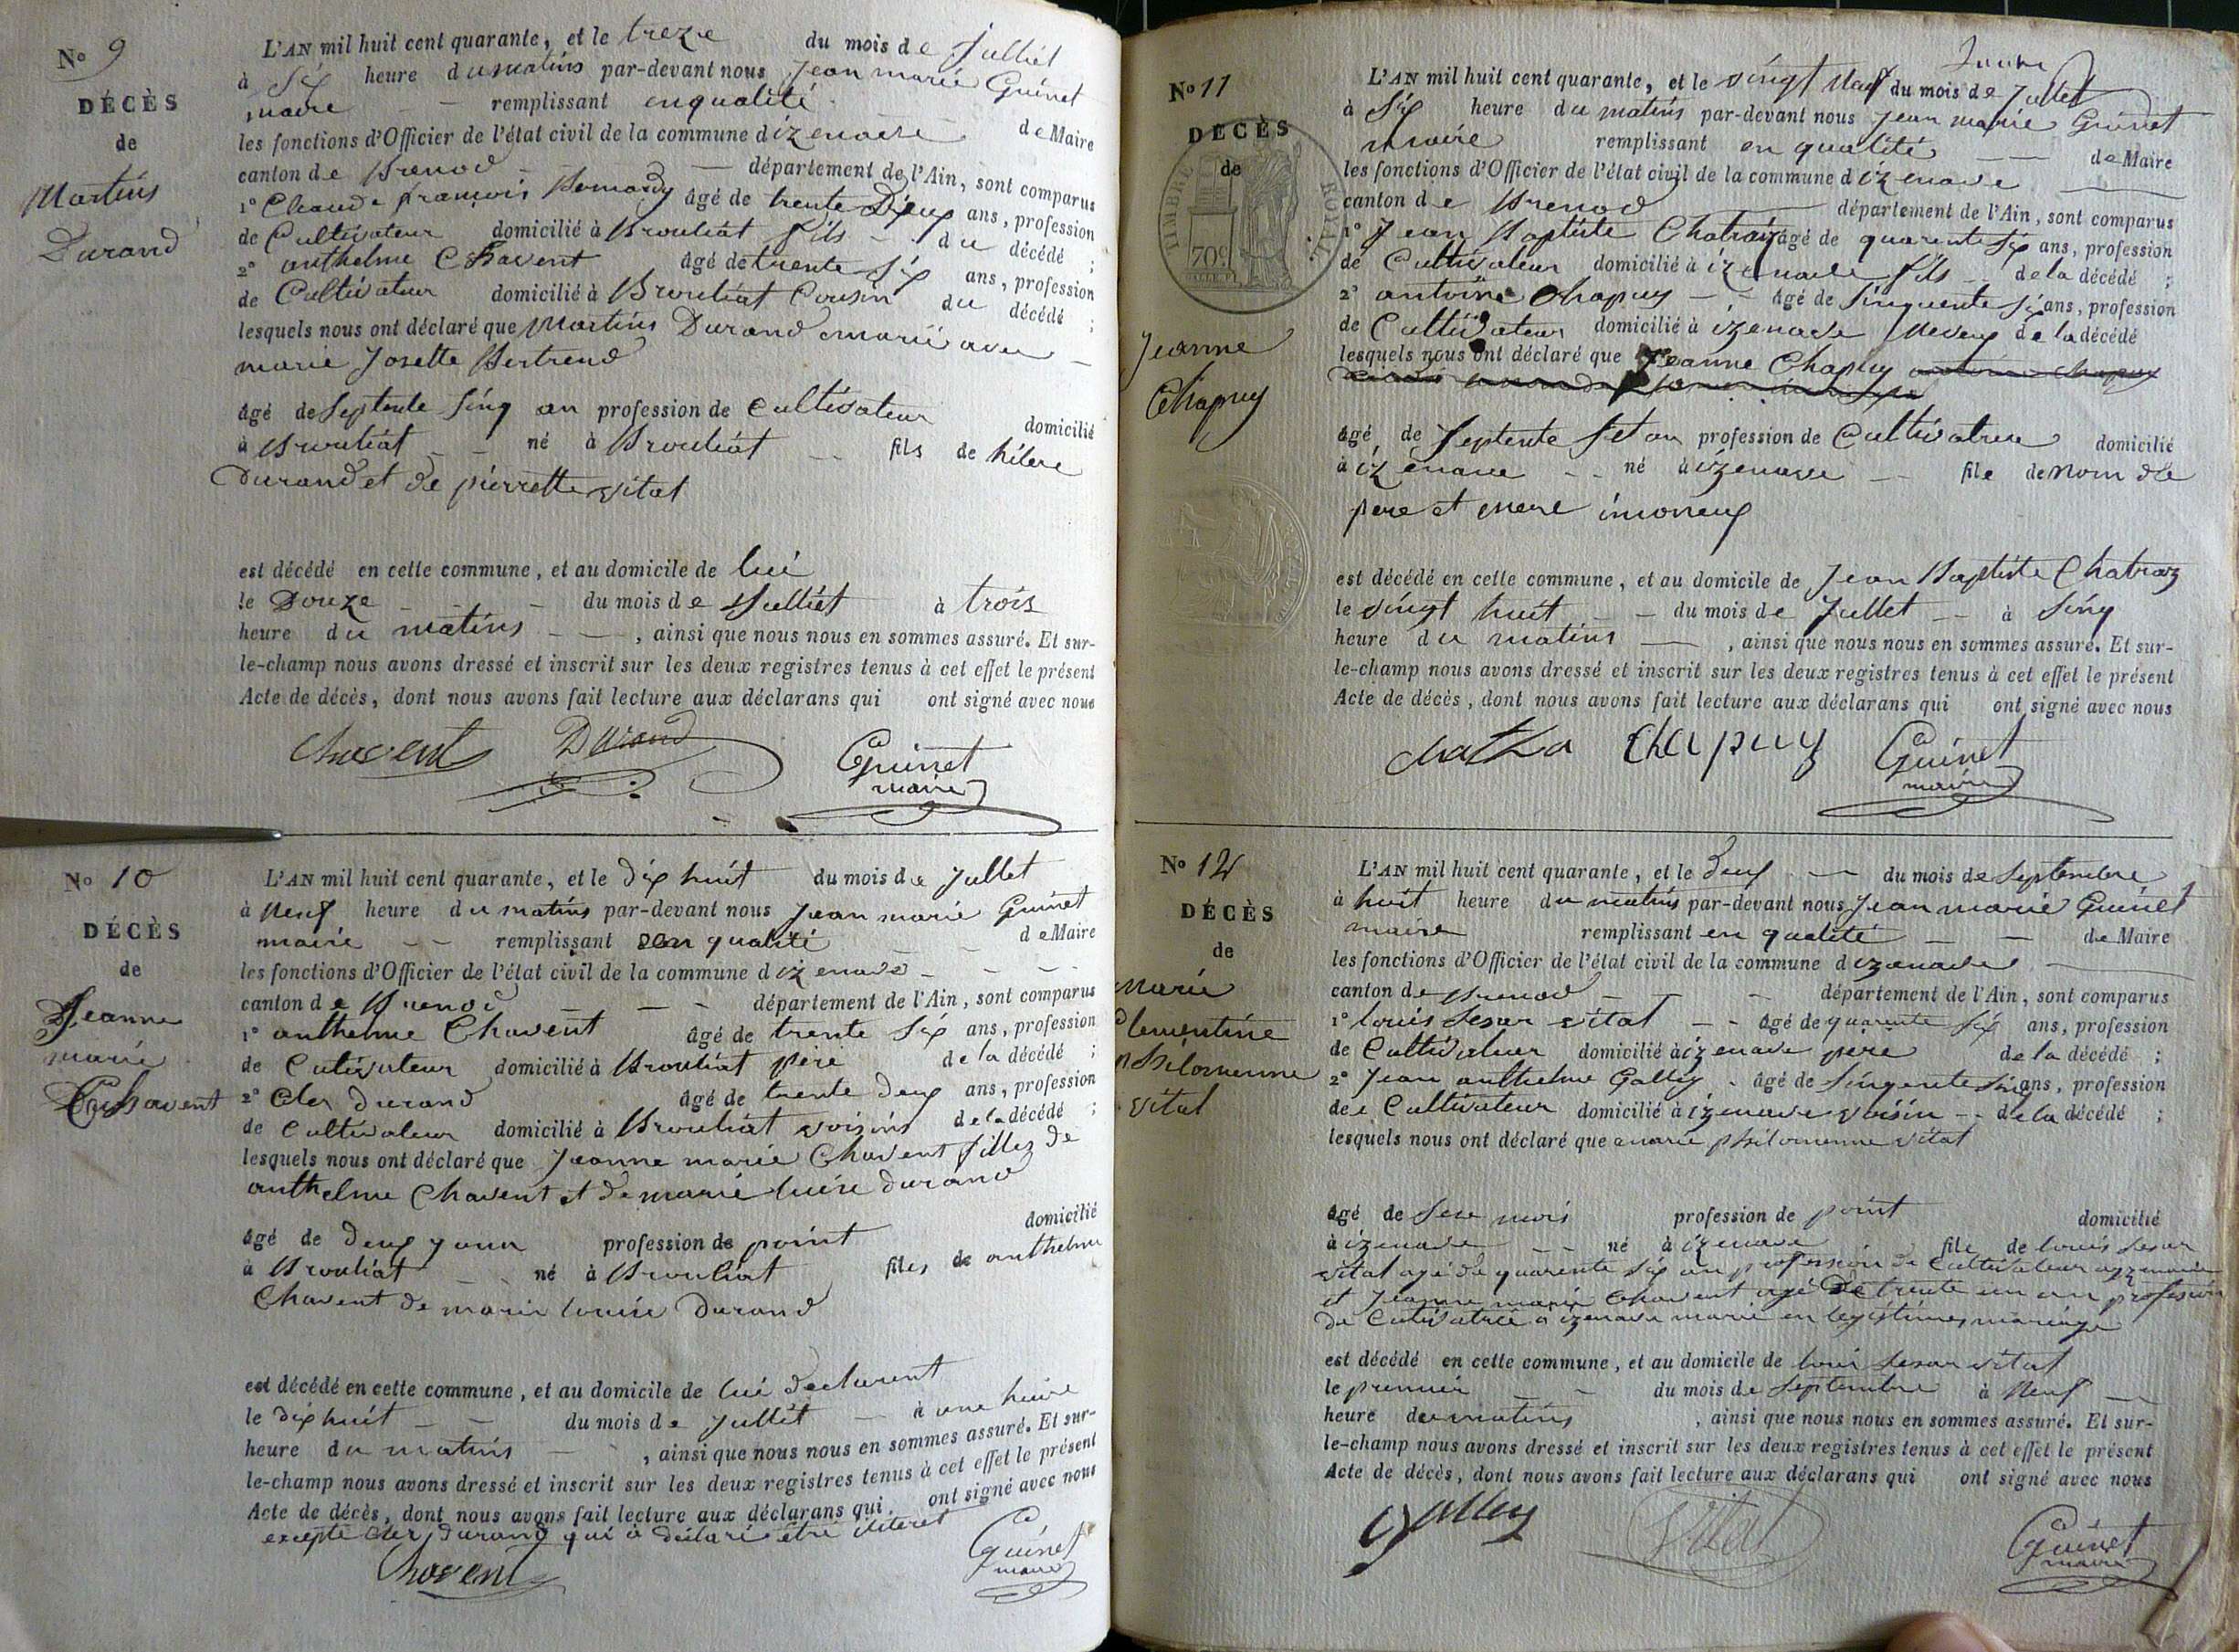 No 9
DÉCÈS
de
Martins
Durand
L'AN mil huit cent quarante, et le treze du mois de Julliet
à Six heure du matins par-devant nous Jean marie Guinet
maire remplissant en qualité de Maire
les fonctions d'Officier de l'état civil de la commune d izenave
canton de Brenod département de l'Ain, sont comparus
1° Claude francois âgé de trente Deux ans, profession
de Cultivateur domicilié à Brouliat fils du décédé ;
2° anthelme Chavent âgé de trente six ans, profession
de Cultivateur domicilié à Brouliat Cousin du décédé ;
lesquels nous ont déclaré que Martins Durand marié avec
marie Josette Bertrend
âgé de Septente sinq an profession de Cultivateur domicilié
à Brouliat né à Brouliat fils de hilere
Durand et de pierrette vital
est décédé en cette commune, et au domicile de lui
le Douze du mois de Julliet à trois
heure du matins , ainsi que nous nous en sommes assuré. Et sur-
le-champ nous avons dressé et inscrit sur les deux registres tenus à cet effet le présent
Acte de décès, dont nous avons fait lecture aux déclarans qui ont signé avec nous
Chavent Durand Guinet
maire
No 10
DÉCÈS
de
Jeanne
marie
Chavent
L'AN mil huit cent quarante, et le dix huit du mois de Jullet
à Neuf heure du matins par-devant nous Jean marie Guinet
maire remplissant en qualité de Maire
les fonctions d'Officier de l'état civil de la commune d izenave
canton de Brenod département de l'Ain, sont comparus
1° anthelme Chavent âgé de trente six ans, profession
de Cutivateur domicilié à Brouliat père de la décédé ;
2° Cler durand âgé de trente deux ans, profession
de Cultivateur domicilié à Brouliat voisins de la décédé ;
lesquels nous ont déclaré que Jeanne marie Chavent fillez de
anthelme Chavent et de marie luise durand
âgé de deux jour profession de point domicilié
à Brouliat né à Brouliat files de anthelme
Chavent de marie louise Durand
est décédé en cette commune, et au domicile de lui declarent
le dix huit du mois de Jullet à une heure
heure du matins , ainsi que nous nous en sommes assuré. Et sur-
le-champ nous avons dressé et inscrit sur les deux registres tenus à cet effet le présent
Acte de décès, dont nous avons fait lecture aux déclarans qui ont signé avec nous
excepte cler durand qui a déclaré être iliteret
Chavent Guinet
maire
No 11
DÉCÈS
de
TIMBRE ROYAL
70c
Jeanne
Chapuy
L'AN mil huit cent quarante, et le vingt Neuf du mois de Jullet
à Six heure du matins par-devant nous Jean marie Guinet
maire remplissant en qualité de Maire
les fonctions d'Officier de l'état civil de la commune d izenave
canton de Brenod département de l'Ain, sont comparus
1° Jean Baptiste Chatraz âgé de quarente six ans, profession
de Cultivateur domicilié à izenave fils de la décédé ;
2° antoine Chapuy âgé de sinquente six ans, profession
de Cultivateur domicilié à izenave Neveu de la décédé
lesquels nous ont déclaré que Jeanne Chapuy
âgé de Septente set an profession de Cultivatrice domicilié
à izenave né à izenave file de Nom de
pere et mere inconeux
est décédé en cette commune, et au domicile de Jean Baptiste Chatraz
le vingt huit du mois de Jullet à sinq
heure du matins , ainsi que nous nous en sommes assuré. Et sur-
le-champ nous avons dressé et inscrit sur les deux registres tenus à cet effet le présent
Acte de décès, dont nous avons fait lecture aux déclarans qui ont signé avec nous
Chapuy Guinet
maire
No 12
DÉCÈS
de
Marie
Clementine
philomenne
vital
L'AN mil huit cent quarante, et le deux du mois de Septembre
à huit heure du matins par-devant nous Jean marie Guinet
maire remplissant en qualité de Maire
les fonctions d'Officier de l'état civil de la commune d izenave
canton de Brenod département de l'Ain, sont comparus
1° louis sesar vital âgé de quarente six ans, profession
de Cultivateur domicilié à izenave pere de la décédé ;
2° Jean anthelme Galley âgé de singente sinq ans, profession
de Cultivateur domicilié à izenave voisin de la décédé ;
lesquels nous ont déclaré que marie philomenne vital
âgé de sese mois profession de point domicilié
à izenave né à izenave file de louis sesar
vital agé de quarente six an profession de Cultivateur
et Jeanne marie Chavent agé De trente un an profession
de Cutivatrice a izenave marié en legistimes mariage
est décédé en cette commune, et au domicile de loui sesar vital
le premier du mois de Septembre à Neuf
heure du matins , ainsi que nous nous en sommes assuré. Et sur-
le-champ nous avons dressé et inscrit sur les deux registres tenus à cet effet le présent
Acte de décès, dont nous avons fait lecture aux déclarans qui ont signé avec nous
Galley Vital Guinet
maire